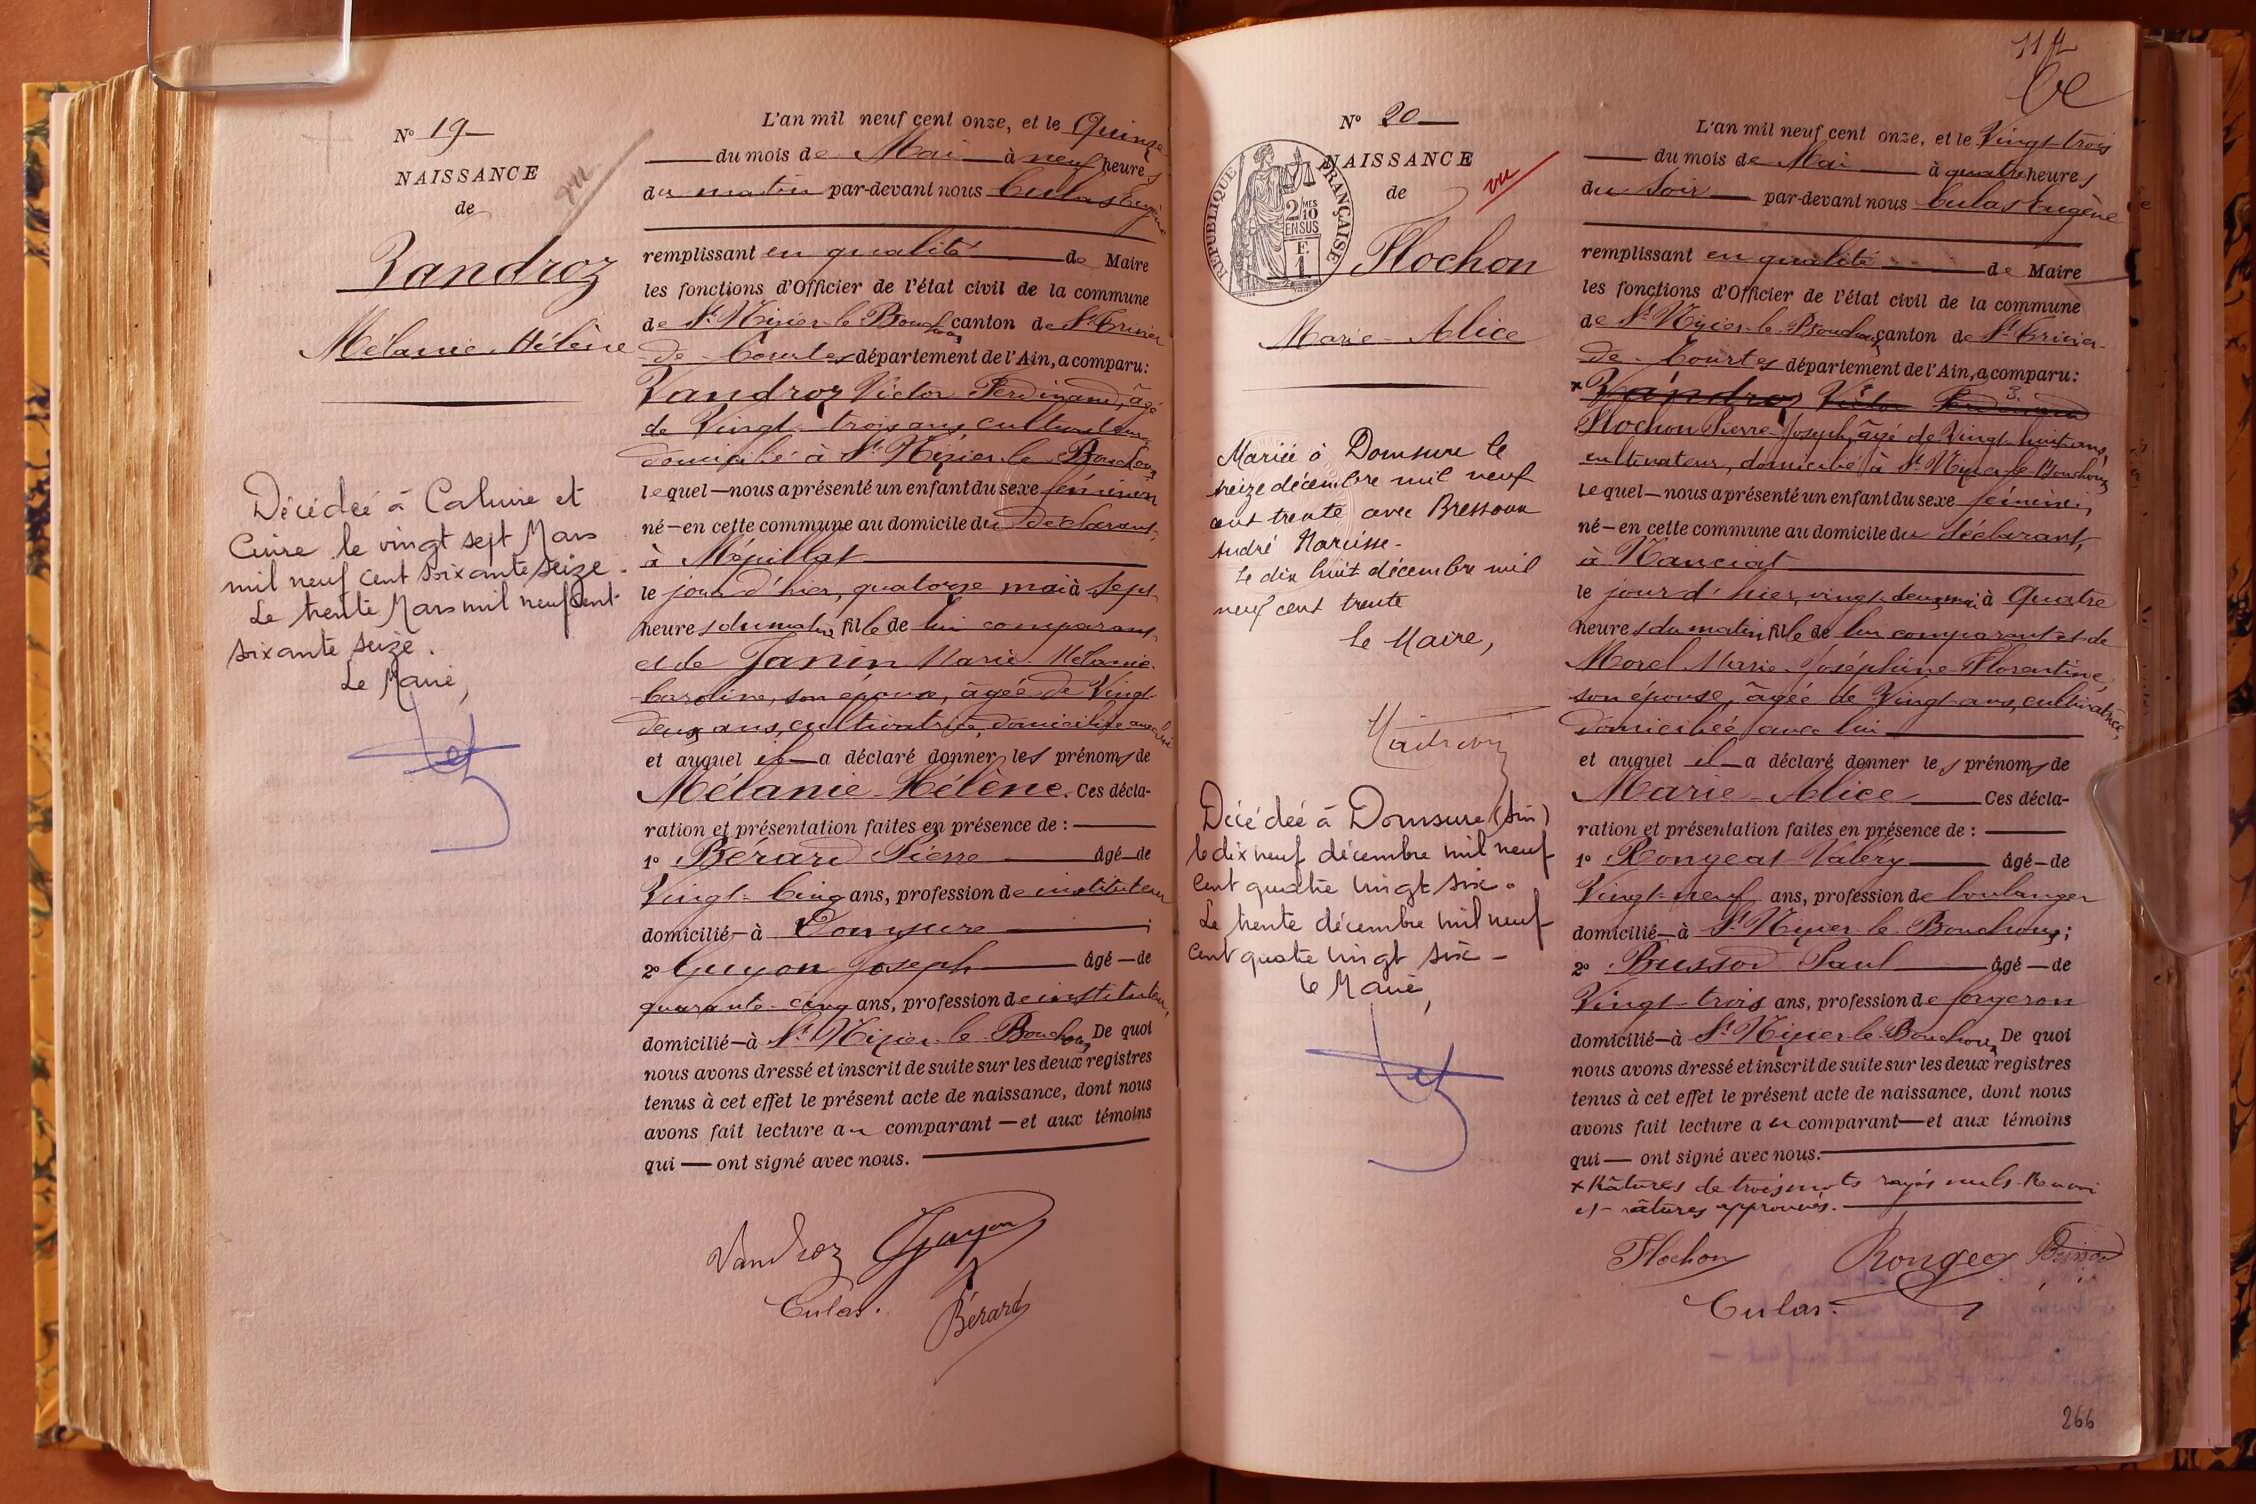 N° 19
NAISSANCE
de
Vandroz
Mélanie Hélène
vu
Décédée à Caluire et
Cuire le vingt sept Mars
mil neuf cent soixante seize.
Le trente Mars mil neuf cent
soixante seize.
Le Maire,
L'an mil neuf cent onze, et le Quinze
du mois de Mai à neuf heures
du matin par-devant nous Culas Eugène
remplissant en qualité de Maire
les fonctions d'Officier de l'état civil de la commune
de St Nizier le Bouchoux canton de St Trivier
de Courtes département de l'Ain, a comparu:
Vandroz Victor Ferdinand, âgé
de Vingt-trois ans cultivateur
domicilié à St Nizier le Bouchoux
lequel nous a présenté un enfant du sexe féminin
né en cette commune au domicile du déclarant,
à Mépillat
le jour d'hier, quatorze mai à sept
heures du matin fille de lui comparant
et de Janin Marie Mélanie
Caroline, son épouse, âgée de Vingt
deux ans, cultivatrice, domiciliée avec lui
et auquel il a déclaré donner les prénoms de
Mélanie Hélène. Ces décla-
ration et présentation faites en présence de :
1° Bérard Pierre âgé de
Vingt-Cinq ans, profession de instituteur
domicilié à Domsure ;
2° Guyon Joseph âgé de
quarante-cinq ans, profession de instituteur,
domicilié à St Nizier le Bouchoux De quoi
nous avons dressé et inscrit de suite sur les deux registres
tenus à cet effet le présent acte de naissance, dont nous
avons fait lecture au comparant et aux témoins
qui ont signé avec nous.
Vandroz Guyon
Culas. Bérard
N° 20
NAISSANCE
de
vu
RÉPUBLIQUE FRANÇAISE
2 MES
10
EN SUS
F.
1
Flochon
Marie-Alice
Mariée à Domsure le
treize décembre mil neuf
cent trente avec Bressoux
André Narcisse.
Le dix huit décembre mil
neuf cent trente
Le Maire,
Décédée à Domsure (Ain)
le dix neuf décembre mil neuf
cent quatre vingt six.
Le trente décembre mil neuf
cent quatre vingt six
le Maire,
L'an mil neuf cent onze, et le Vingt-trois
du mois de Mai à quatre heures
du soir par-devant nous Culas Eugène
remplissant en qualité de Maire
les fonctions d'Officier de l'état civil de la commune
de St Nizier-le-Bouchoux canton de St Trivier
de Courtes département de l'Ain, a comparu:
x Vandroz Victor Ferdinand
Flochon Pierre Joseph, âgé de Vingt-huit ans,
cultivateur, domicilié à St Nizier le Bouchoux
lequel nous a présenté un enfant du sexe féminin,
né en cette commune au domicile du déclarant,
à Nanciat
le jour d'hier, vingt-deux mai à Quatre
heures du matin fille de lui comparant et de
Morel Marie Joséphine Florentine,
son épouse, âgée de Vingt ans, cultivatrice,
domiciliée avec lui
et auquel il a déclaré donner les prénoms de
Marie-Alice Ces décla-
ration et présentation faites en présence de :
1° Rongeat Valéry âgé de
Vingt-neuf ans, profession de boulanger
domicilié à St Nizier le Bouchoux;
2° Buisson Paul âgé de
Vingt-trois ans, profession de forgeron
domicilié à St Nizier le Bouchoux De quoi
nous avons dressé et inscrit de suite sur les deux registres
tenus à cet effet le présent acte de naissance, dont nous
avons fait lecture au comparant et aux témoins
qui ont signé avec nous.
x Ratures de trois mots rayés nuls. Renvoi
et ratures approuvés.
Flochon Rongeat
Culas.
266